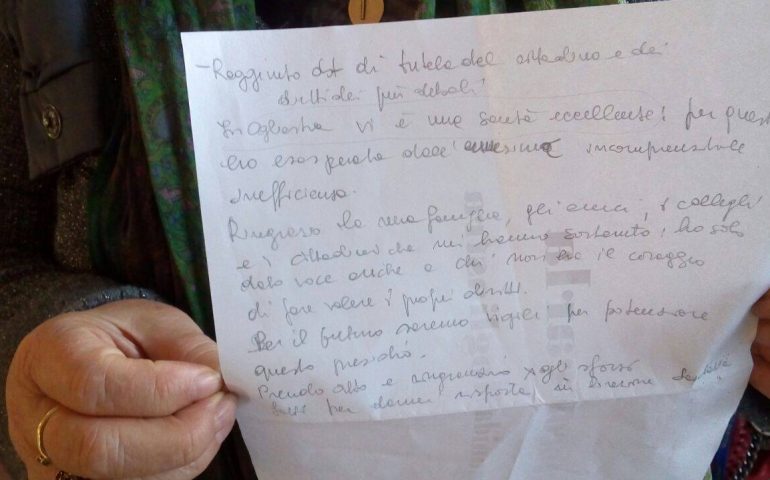 - Raggiunto ob. di tutela del cittadino e dei
diritti dei più deboli
In Ogliastra vi è una sanità eccellente! per questo
ero esasperata dall' ennesima incomprensibile
inefficienza.
Ringrazio la mia famiglia, gli amici, i colleghi
e i cittadini che mi hanno sostenuto; ho solo
dato voce anche a chi non ha il coraggio
di fare valere i propri diritti.
Per il futuro saremo vigili per potenziare
questo presidio.
Prendo atto e ringrazio x gli sforzi
per darmi risposta, in direzione